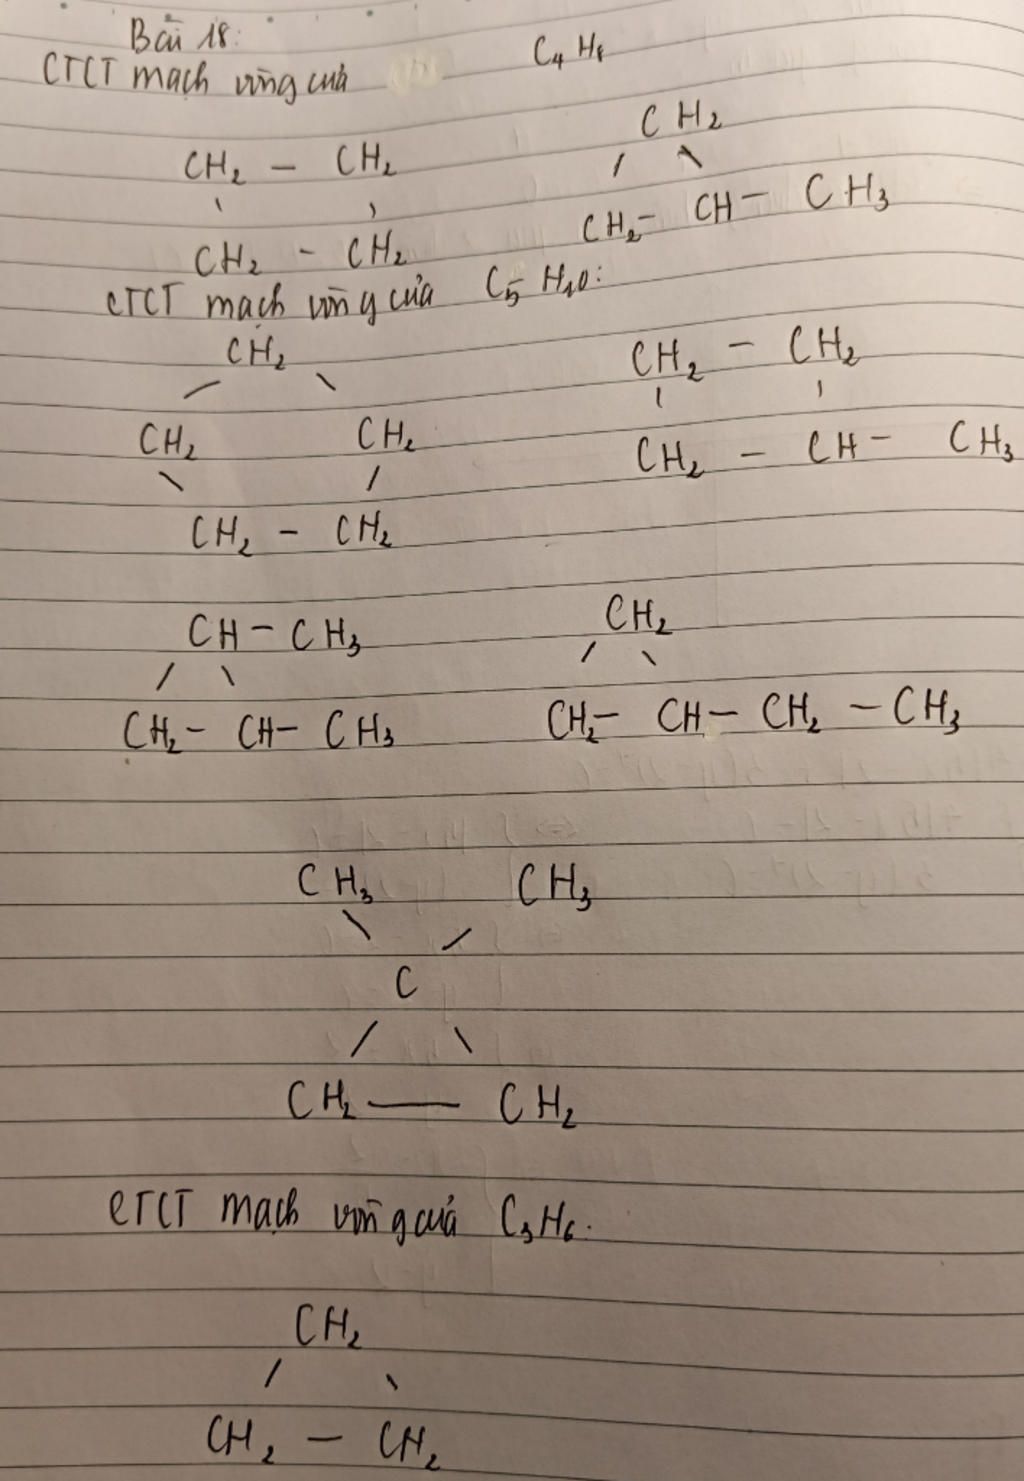 Bài 18:
CTCT mạch vòng của C4H8
CH2
CH2 – CH2
CH2 – CH – CH3
CH2 – CH2
CTCT mạch vòng của C5H10:
CH2
CH2 – CH2
CH2 CH2
CH2 – CH – CH3
CH2 – CH2
CH – CH3
CH2
CH2 – CH – CH3
CH2 – CH – CH2 – CH3
CH3 CH3
C
CH2 — CH2
CTCT mạch vòng của C3H6.
CH2
CH2 – CH2